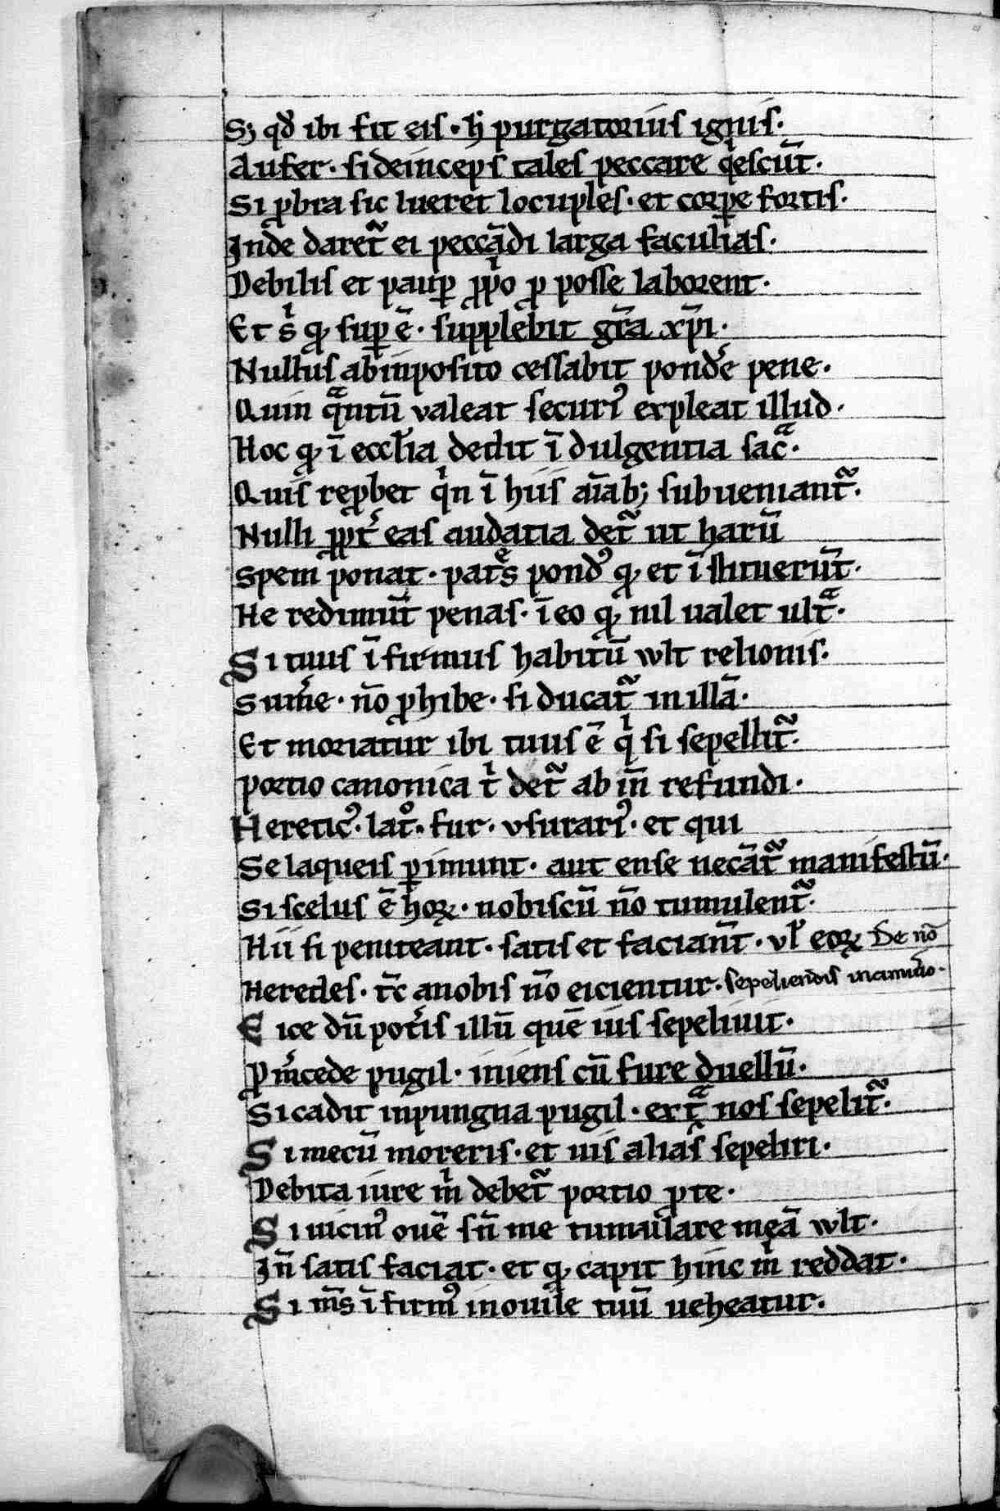 Sꝫ qđ ibi fit eis · h̄ purgatorius ignis ·
Aufer · si deinceps tales peccare q̇escūt ·
Si ꝓbra sic lueret locuples · et corꝑe fortis ·
Inde daret᷑ ei peccādi larga facultas ·
Debilis et pauꝑ pͥpo ꝓ posse laborent ·
Et sͥ qͥ suꝑ ē · supplebit gr̄a xp̄i ·
Nullus ab inposito cessabit pond̓e pene ·
Quin qͣntū valeat securiꝰ expleat illud ·
Hoc qͥ ī eccl̄ia dedit īdulgentia sacͣ ·
Quis reꝓbet qͥn ī hiis aīabꝫ subueniant᷑ ·
Nulli ꝓpt̓ eas audatia det᷑ ut harū
Spem ponat · patͤs pondꝰ qͥ et īstituerūt ·
He redimūt penas · ī eo qͥ nil ualet ultͣ ·
Si tuus īfirmus habitū wlt relionis ·
Sum̓e · nō ꝓhibe · si ducat᷑ in illā ·
Et moriatur ibi tuus ē qͥ si sepellit᷑ ·
Portio canonica tͥ det᷑ ab in̄ refundi ·
Hereticꝰ · latͦ · fur · vsurariꝰ · et qui
Se laqueis ꝑimunt · aut ense necāt᷑ manifestū ·
Si scelus ē hoꝝ · nobiscū nō tumulent᷑ ·
Hii si peniteant · satis et faciant̄ · vl̓ eoꝝ De nō
Heredes · tc̄ a nobis nō eicientur · sepeliendis in cimit̓io ·
Eice dū pot̓is illū quē ius sepeliuit ·
ꝓ m̓cede pugil · iniens cū fure duellū ·
Si cadit in pungna pugil · extͣ nos sepelit᷑ ·
Si mecū moreris · et uis alias sepeliri ·
Debita iure mͥ debet᷑ portio ꝓ te ·
Si uicinꝰ ouē sn̄ me tumulare meā wlt ·
In̄ satis faciat · et qͥ capit hinc mͥ reddat ·
Si m̄s īfirmꝰ in ouile tuū ueheatur ·